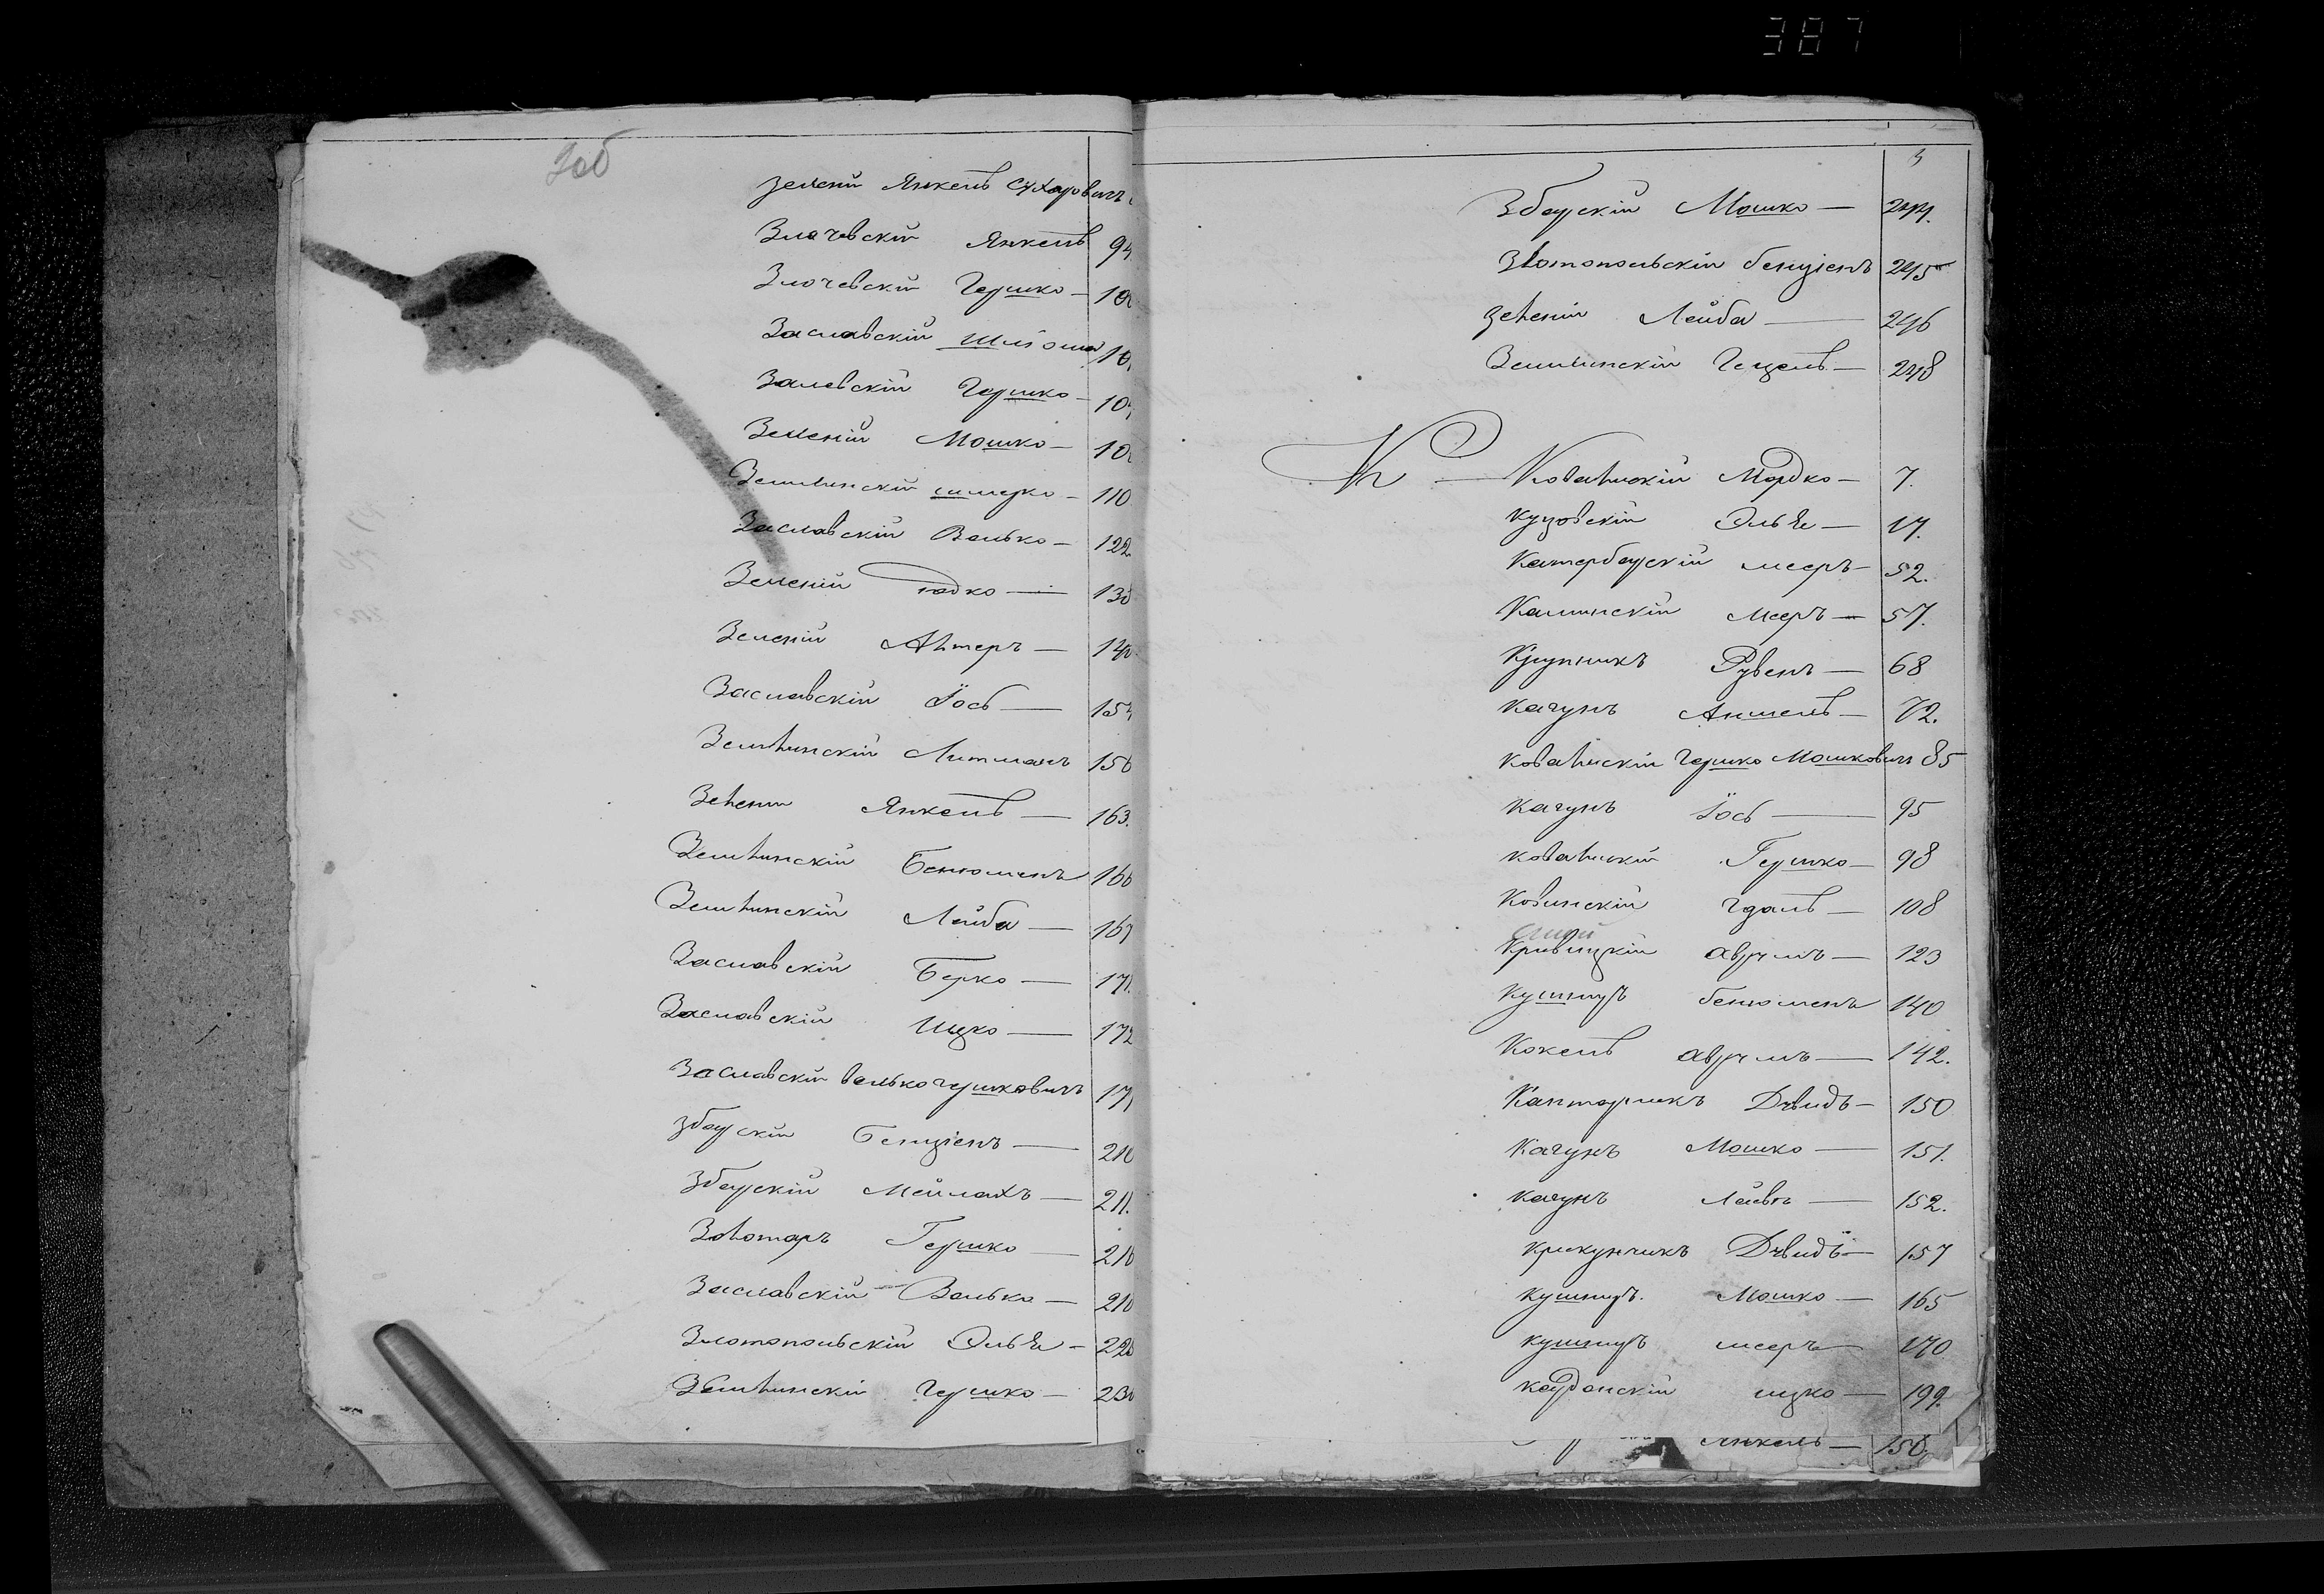 387
Зоб
Зелений Янкель Сухаровичъ
Злачевскій Янкель 94
Злочевскій Гершко — 10
Заславскій Шліома 10
Залевскій Гершко — 10
Зеленій Мошко — 10
Земшинскій — 110
Заславскій Волько — 122
Зеленій Юдко — 130
Зеленій Альтеръ — 140
Заславскій Іось — 154
Землинскій Литманъ 156
Зелени Янкель — 163.
Землинскій Бенюменъ 166
Землинскій Лейба — 167
Заславскій Берко — 171
Заславскій Ицко — 172
Заславскій Волько Гершковичъ 17
Збарскій Бенціенъ — 210
Збарскій Мейлахъ — 211.
Золотаръ Гершко — 216
Заславскій Волько — 210
Златопольскій Эльѣ — 228
Землинскій Гершко — 230
3
Збарскій Мошко — 244.
Злотопольскій Бенціенъ 245
Зеленій Лейба — 246
Землинскій Гецель — 248
К — Ковальскій Мордко — 7.
Куцовскій Эльѣ — 17.
Катербарскій Мееръ — 52.
Калинскій Мееръ — 57.
Крупникъ Рувенъ — 68
Качунъ Аншель — 72.
Ковальскій Гершко Мошковичъ 85
Качунъ Іось — 95
Ковальскій Гершко — 98
Ковинскій Гдаль — 108
Кривицкій Аврумъ — 123
Кушниръ Бенюменъ 140
Кокель Аврумъ — 142.
Канторчикъ Дувидъ — 150
Качунъ Мошко — 151.
Качунъ Лейвъ — 152.
Крикунчикъ Дувидъ — 157
Кушниръ. Мошко — 165
Кушниръ Мееръ — 170
Кардонскій Ицко — 199.
Янкель — 150.